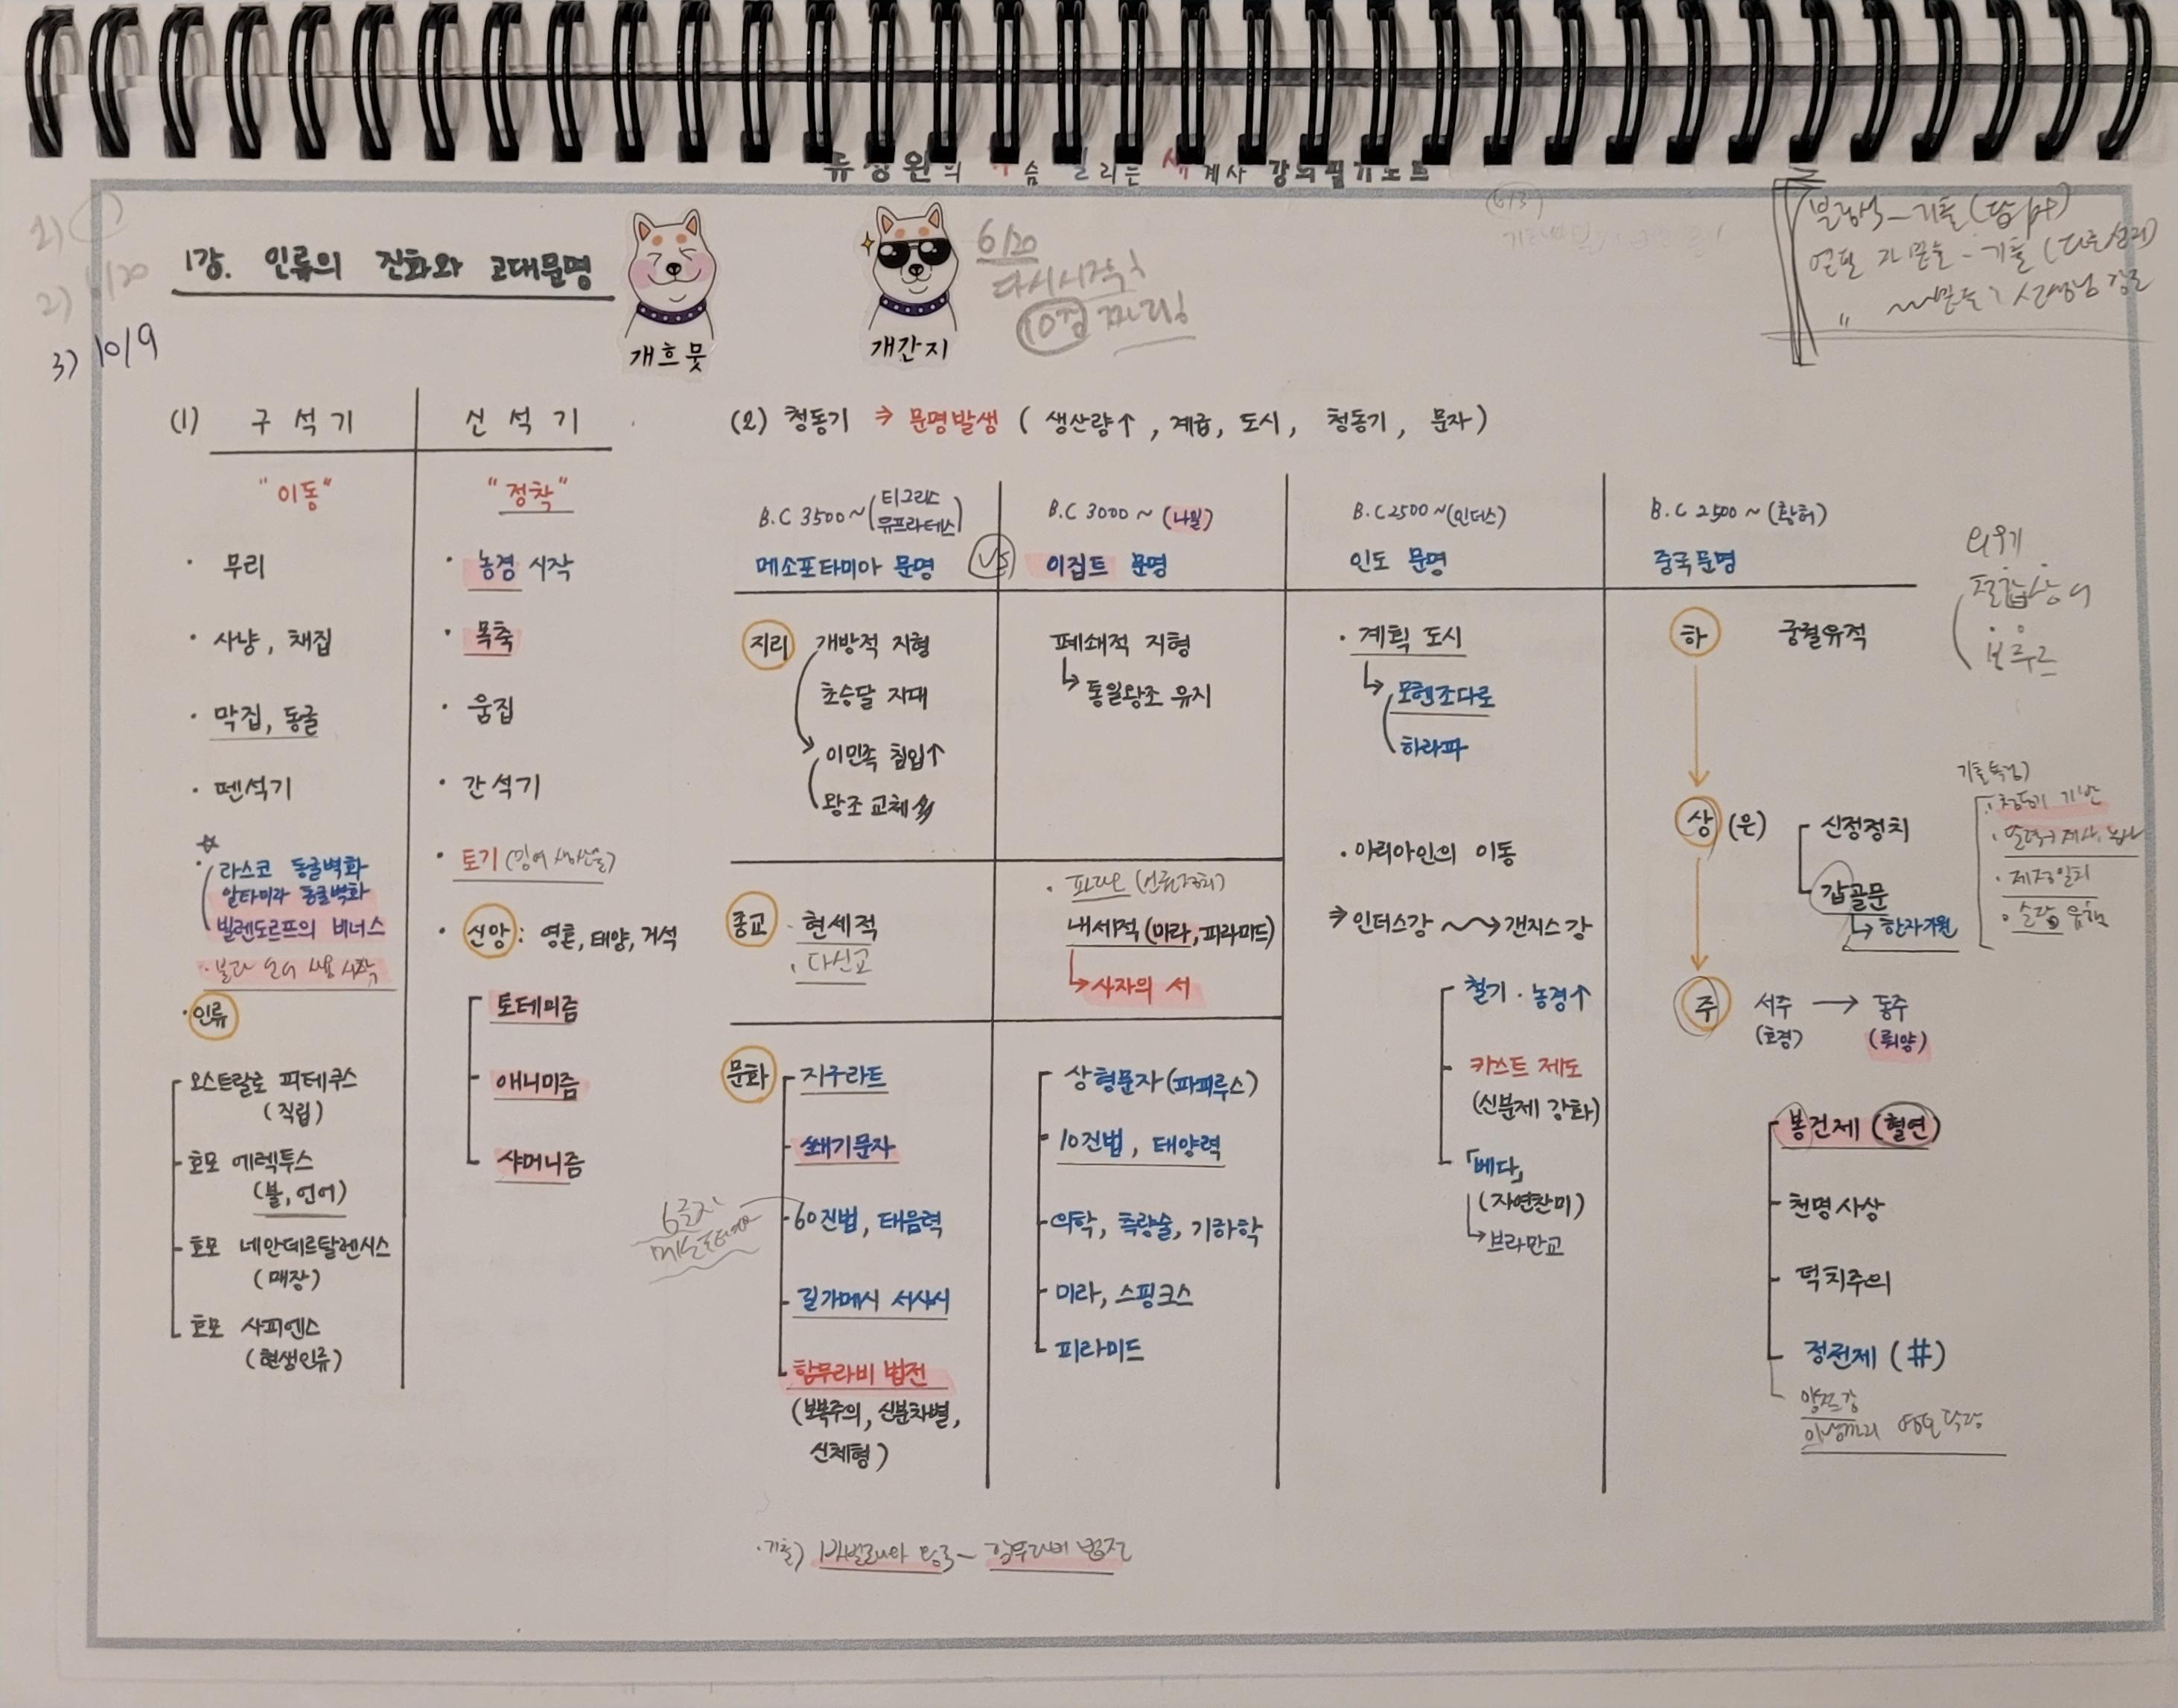 1강. 인류의 진화와 고대문명
개흐뭇
개간지
6/20
다시시작
10점
3) 10/9
(1) 구석기
신석기
"이동"
"정착"
· 무리
· 사냥, 채집
· 막집, 동굴
· 뗀석기
· 라스코 동굴벽화
알타미라 동굴벽화
빌렌도르프의 비너스
· 불과 언어 사용 시작
· 인류
오스트랄로 피테쿠스
(직립)
호모 에렉투스
(불, 언어)
호모 네안데르탈렌시스
(매장)
호모 사피엔스
(현생인류)
· 농경 시작
· 목축
· 움집
· 간석기
· 토기 (잉여 생산물)
· 신앙 : 영혼, 태양, 거석
토테미즘
애니미즘
샤머니즘
(2) 청동기 ⇒ 문명발생 ( 생산량↑, 계급, 도시, 청동기, 문자 )
B.C 3500~ (티그리스
유프라테스)
메소포타미아 문명
VS
B.C 3000 ~ (나일)
이집트 문명
B.C 2500 ~ (인더스)
인도 문명
B.C 2500 ~ (황허)
중국문명
지리
개방적 지형
초승달 지대
이민족 침입↑
왕조 교체
폐쇄적 지형
↳ 통일왕조 유지
종교
· 현세적
· 다신교
· 파라오
내세적 (미라, 피라미드)
↳ 사자의 서
문화
지구라트
쐐기문자
60진법, 태음력
길가메시 서사시
함무라비 법전
(보복주의, 신분차별,
신체형)
6글자
상형문자 (파피루스)
10진법, 태양력
의학, 측량술, 기하학
미라, 스핑크스
피라미드
· 계획 도시
↳ 모헨조다로
하라파
· 아리아인의 이동
⇒ 인더스강 ~→ 갠지스강
철기 · 농경↑
카스트 제도
(신분제 강화)
「베다」
(자연찬미)
↳ 브라만교
하
궁궐유적
상 (은)
신정정치
갑골문
↳ 한자기원
주
서주 → 동주
(호경)
(뤄양)
봉건제 (혈연)
천명사상
덕치주의
정전제 (#)
외우기
기출특징)
· 청동기 기반
· 제정일치
· 순장
· 기출) 바빌로니아 왕국 — 함무라비 법전